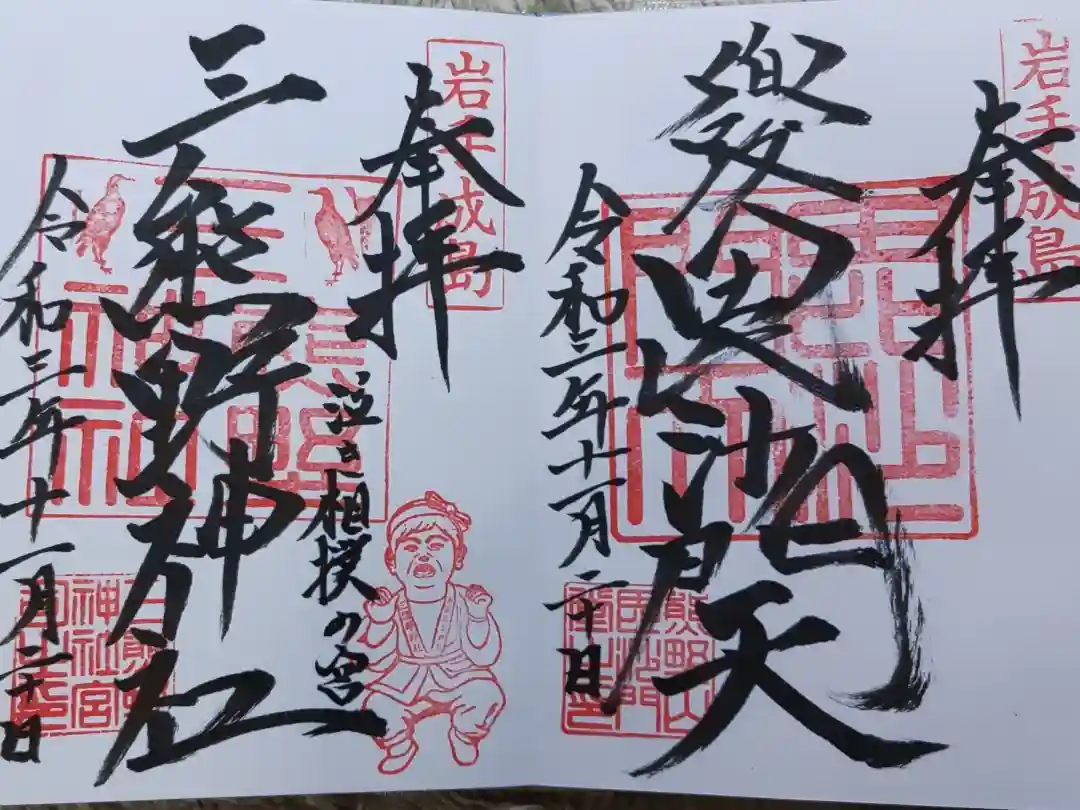 岩手成島
奉拝
兜跋毘沙門天
令和三年十一月二十日
岩手成島
奉拝
三熊野神社
泣き相撲の宮
令和三年十一月二十日